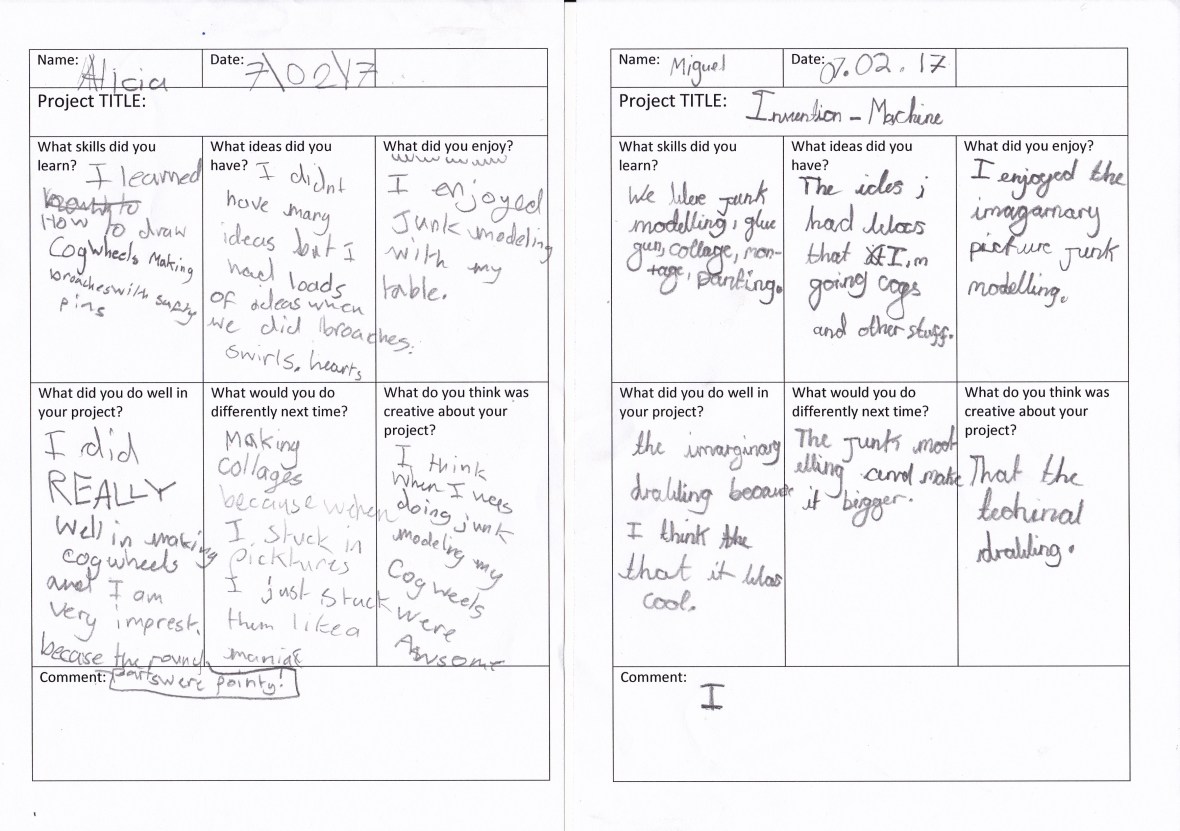 Name: Alicia
Date: 7\02\17
Project TITLE:
What skills did you
learn? I learned
How to draw
Cogwheels Making
broaches with safty
pins
What ideas did you
have? I didnt
have many
ideas but I
had loads
of ideas when
we did broaches.
swirls, hearts
What did you enjoy?
I enjoyed
Junk modeling
with my
table.
What did you do well in
your project?
I did
REALLY
Well in making
cogwheels
and I am
very imprest.
becase the round
parts were pointy!
What would you do
differently next time?
Making
collages
because when
I stuck in
picktures
I just stuck
them like a
maniac
What do you think was
creative about your
project?
I think
When I was
doing junk
modeling my
Cogweels
were
Awsome
Comment:
Name: Miguel
Date: 07.02.17
Project TITLE: Invention - Machine
What skills did you
learn?
We were junk
modelling, glue
gun, collage, mon-
tage, panting.
What ideas did you
have?
The ides i
had was
that I,m
going cogs
and other stuff.
What did you enjoy?
I enjoyed the
imagarnary
picture junk
modelling.
What did you do well in
your project?
the imarginary
drawing because
I think the
that it was
cool.
What would you do
differently next time?
The junk mod-
elling and make
it bigger.
What do you think was
creative about your
project?
That the
techinal
drawing.
Comment:
I